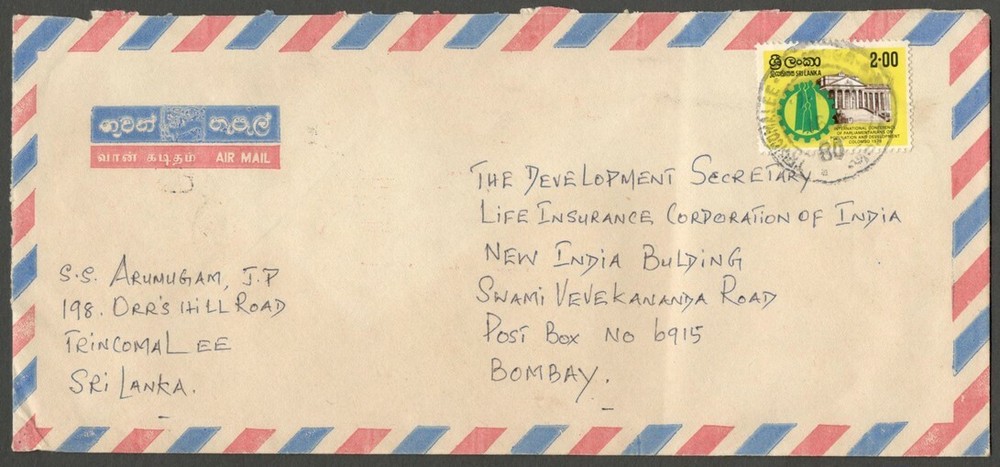 ගුවන් තැපැල්
வான் கடிதம் AIR MAIL
ශ්‍රී ලංකා 2·00
இலங்கை SRI LANKA
INTERNATIONAL CONFERENCE
OF PARLIAMENTARIANS ON
POPULATION AND DEVELOPMENT
COLOMBO 1979
TRINCOMALEE
80
THE DEVELOPMENT SECRETARY
LIFE INSURANCE CORPORATION OF INDIA
NEW INDIA BULDING
SWAMI VEVEKANANDA ROAD
POST BOX NO 6915
BOMBAY.
S.S. ARUMUGAM, J.P
198. ORR'S HILL ROAD
TRINCOMALEE
SRI LANKA.